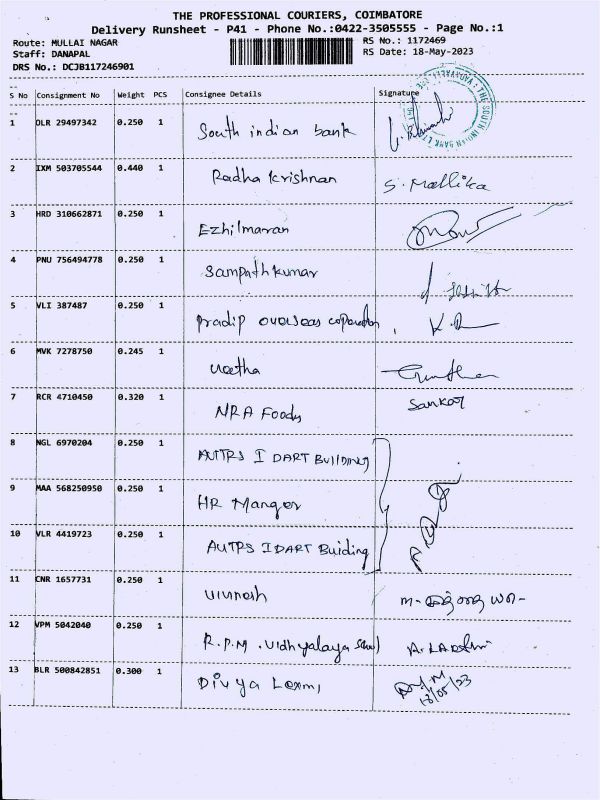 THE PROFESSIONAL COURIERS, COIMBATORE
Delivery Runsheet - P41 - Phone No.:0422-3505555 - Page No.:1
Route: MULLAI NAGAR RS No.: 1172469
Staff: DANAPAL RS Date: 18-May-2023
DRS No.: DCJB117246901
S No Consignment No Weight PCS Consignee Details Signature
THE SOUTH INDIAN BANK LTD
1 OLR 29497342 0.250 1 South indian bank
2 IXM 503705544 0.440 1 Radha krishnan S. Mallika
3 HRD 310662871 0.250 1 Ezhilmaran
4 PNU 756494778 0.250 1 Sampathkumar
5 VLI 387487 0.250 1 Pradip overseas coporation,
6 MVK 7278750 0.245 1
7 RCR 4710450 0.320 1 NRA Foods Sankar
8 NGL 6970204 0.250 1 AUTPS I DART BUIlDING
9 MAA 568250950 0.250 1 HR Manger
10 VLR 4419723 0.250 1 AUTPS IDART Buiding
11 CNR 1657731 0.250 1
12 VPM 5042040 0.250 1 R.P.M. Vidhyalaya School A. LAKshmi
13 BLR 500842851 0.300 1 Divya Laxmi
18/05/23